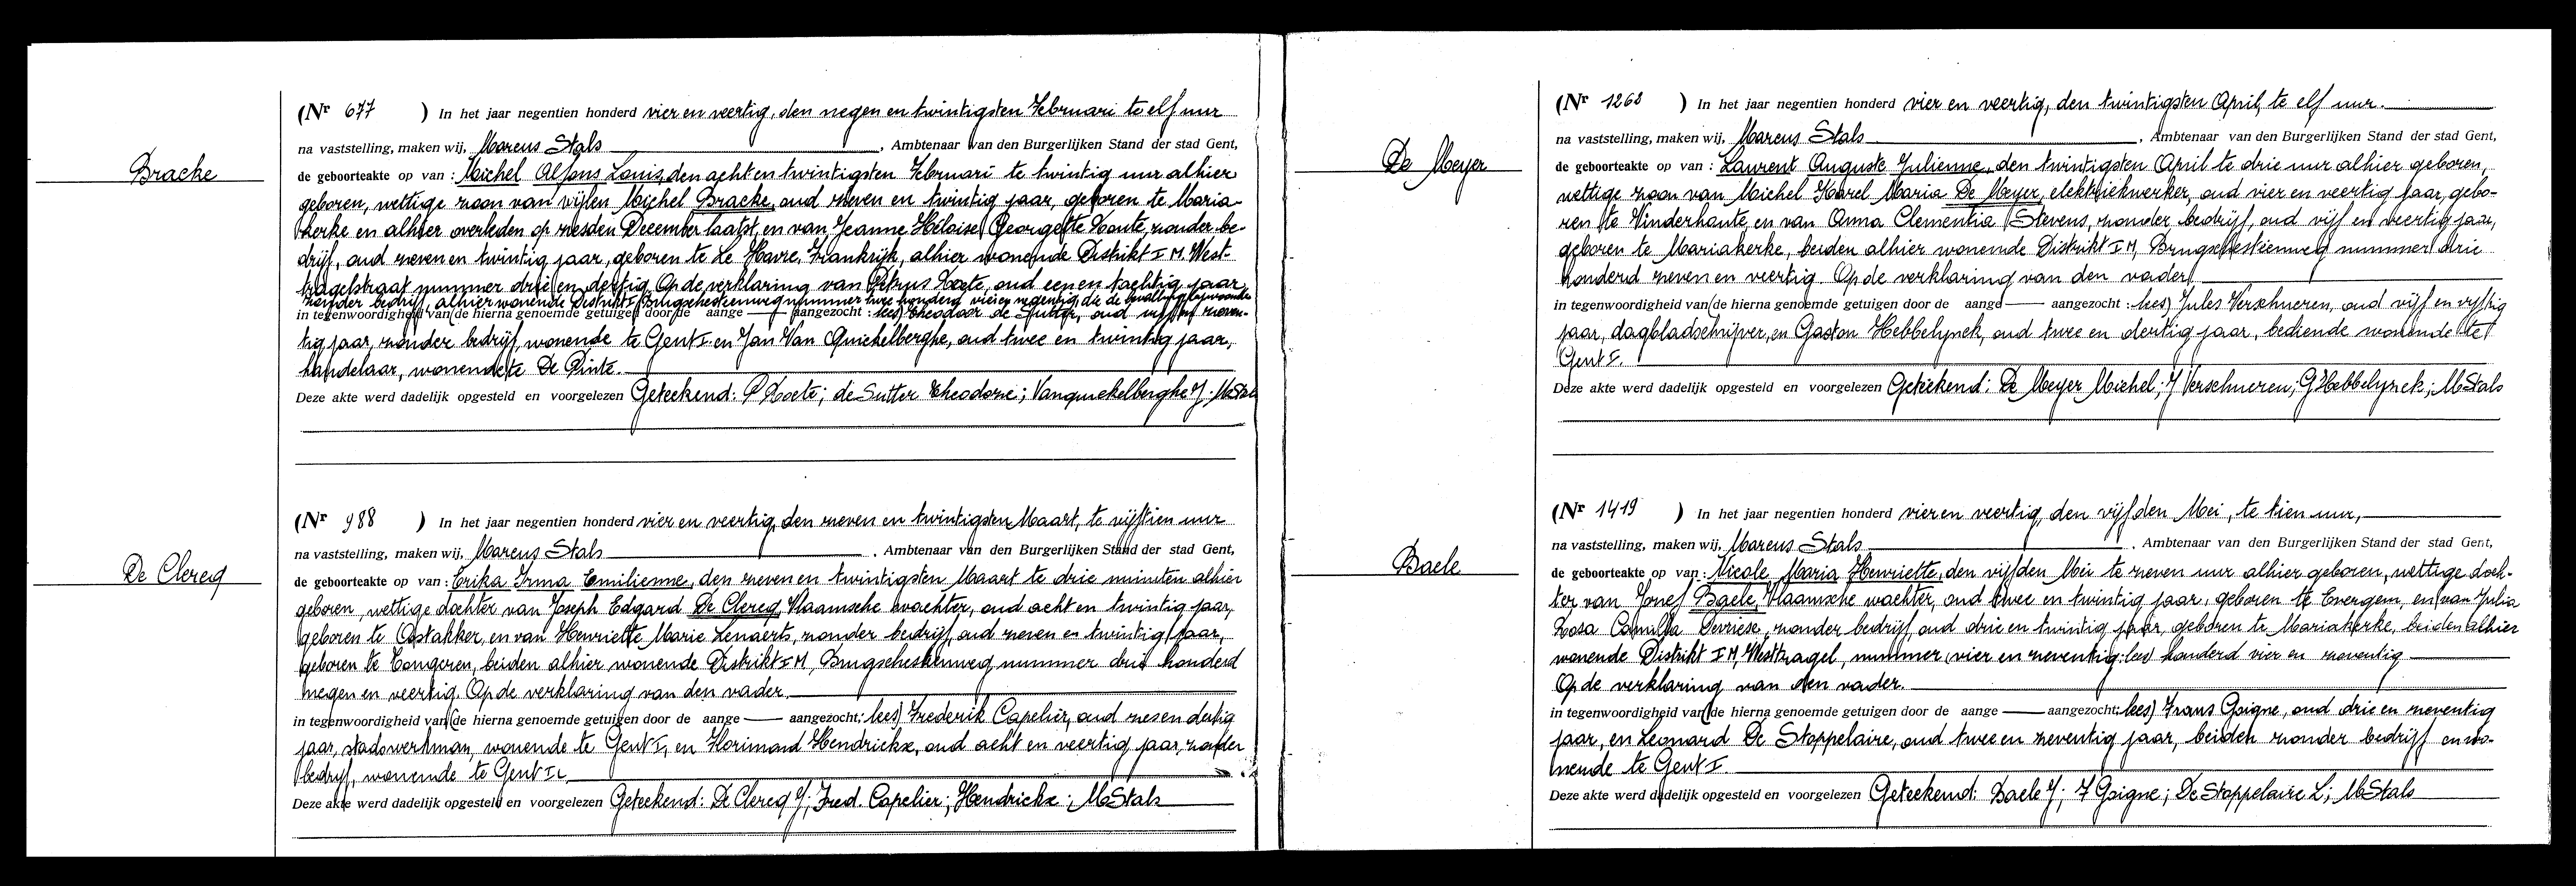 Bracke
(Nr 677 ) In het jaar negentien honderd vier en veertig, den negen en twintigsten Februari te elf uur
na vaststelling, maken wij, Marcus Stals, Ambtenaar van den Burgerlijken Stand der stad Gent,
de geboorteakte op van : Michel Alfons Louis, den acht en twintigsten Februari te twintig uur alhier
geboren, wettige zoon van wijlen Michel Bracke, oud zeven en twintig jaar, geboren te Maria-
kerke en alhier overleden op zesden December laatst, en van Jeanne Héloise Georgette Haute, zonder be-
drijf, oud zeven en twintig jaar, geboren te Le Havre, Frankrijk, alhier wonende Distrikt I M. West-
tragelstraat nummer drie en dertig. Op de verklaring van Petrus Koete, oud een en tachtig jaar,
zonder bedrijf, alhier wonende Distrikt I, Brugschesteenweg nummer twee honderd vier en negentig, die de bevalling bijwoonde
in tegenwoordigheid van (de hierna genoemde getuigen door de aange — aangezocht : lees) Theodoor de Sutter, oud vijf en zeven-
tig jaar, zonder bedrijf, wonende te Gent I. en Jan Van Quickelberghe, oud twee en twintig jaar,
handelaar, wonende te De Pinte.
Deze akte werd dadelijk opgesteld en voorgelezen Geteekend: P Koete; de Sutter Theodore; Vanquickelberghe J; MStals
De Clercq
(Nr 988 ) In het jaar negentien honderd vier en veertig, den zeven en twintigsten Maart, te vijftien uur
na vaststelling, maken wij, Marcus Stals, Ambtenaar van den Burgerlijken Stand der stad Gent,
de geboorteakte op van : Erika Irma Emilienne, den zeven en twintigsten Maart te drie minuten alhier
geboren, wettige dochter van Joseph Edgard De Clercq, Vlaamsche wachter, oud acht en twintig jaar,
geboren te Oostakker, en van Henriette Marie Lenaerts, zonder bedrijf, oud zeven en twintig jaar,
geboren te Tongeren, beiden alhier wonende Distrikt I M, Brugschesteenweg nummer drie honderd
negen en veertig. Op de verklaring van den vader.
in tegenwoordigheid van (de hierna genoemde getuigen door de aange — aangezocht; lees) Frederik Capelier, oud zes en dertig
jaar, stadswerkman, wonende te Gent I, en Florimond Hendrickx, oud acht en veertig jaar, zonder
bedrijf, wonende te Gent I.
Deze akte werd dadelijk opgesteld en voorgelezen Geteekend: De Clercq J; Fred. Capelier; Hendrickx; MStals
De Meyer
(Nr 1268 ) In het jaar negentien honderd vier en veertig, den twintigsten April, te elf uur.
na vaststelling, maken wij, Marcus Stals, Ambtenaar van den Burgerlijken Stand der stad Gent,
de geboorteakte op van : Laurent Auguste Julienne, den twintigsten April te drie uur alhier geboren,
wettige zoon van Michel Karel Maria De Meyer, elektriekwerker, oud vier en veertig jaar, gebo-
ren te Vinderhoute, en van Anna Clementia Stevens, zonder bedrijf, oud vijf en veertig jaar,
geboren te Mariakerke, beiden alhier wonende Distrikt I M, Brugschesteenweg nummer drie
honderd zeven en veertig. Op de verklaring van den vader
in tegenwoordigheid van (de hierna genoemde getuigen door de aange — aangezocht : lees) Jules Verschueren, oud vijf en vijftig
jaar, dagbladschrijver, en Gaston Hebbelynck, oud twee en dertig jaar, bediende wonende te
Gent I.
Deze akte werd dadelijk opgesteld en voorgelezen Geteekend: De Meyer Michel; J Verschueren; G Hebbelynck; MStals
Baele
(Nr 1419 ) In het jaar negentien honderd vier en veertig, den vijfden Mei, te tien uur,
na vaststelling, maken wij, Marcus Stals, Ambtenaar van den Burgerlijken Stand der stad Gent,
de geboorteakte op van : Nicole Maria Henriette, den vijfden Mei te zeven uur alhier geboren, wettige doch-
ter van Jozef Baele, Vlaamsche wachter, oud twee en twintig jaar, geboren te Evergem, en van Julia
Rosa Camilla Devriese, zonder bedrijf, oud drie en twintig jaar, geboren te Mariakerke, beiden alhier
wonende Distrikt I M, Westtragel, nummer vier en zeventig: lees honderd vier en zeventig
Op de verklaring van den vader.
in tegenwoordigheid van (de hierna genoemde getuigen door de aange — aangezocht: lees) Frans Goigne, oud drie en zeventig
jaar, en Leonard De Stoppelaire, oud twee en zeventig jaar, beiden zonder bedrijf en wo-
nende te Gent I.
Deze akte werd dadelijk opgesteld en voorgelezen Geteekend: Baele J; F Goigne; De Stoppelaire L; MStals